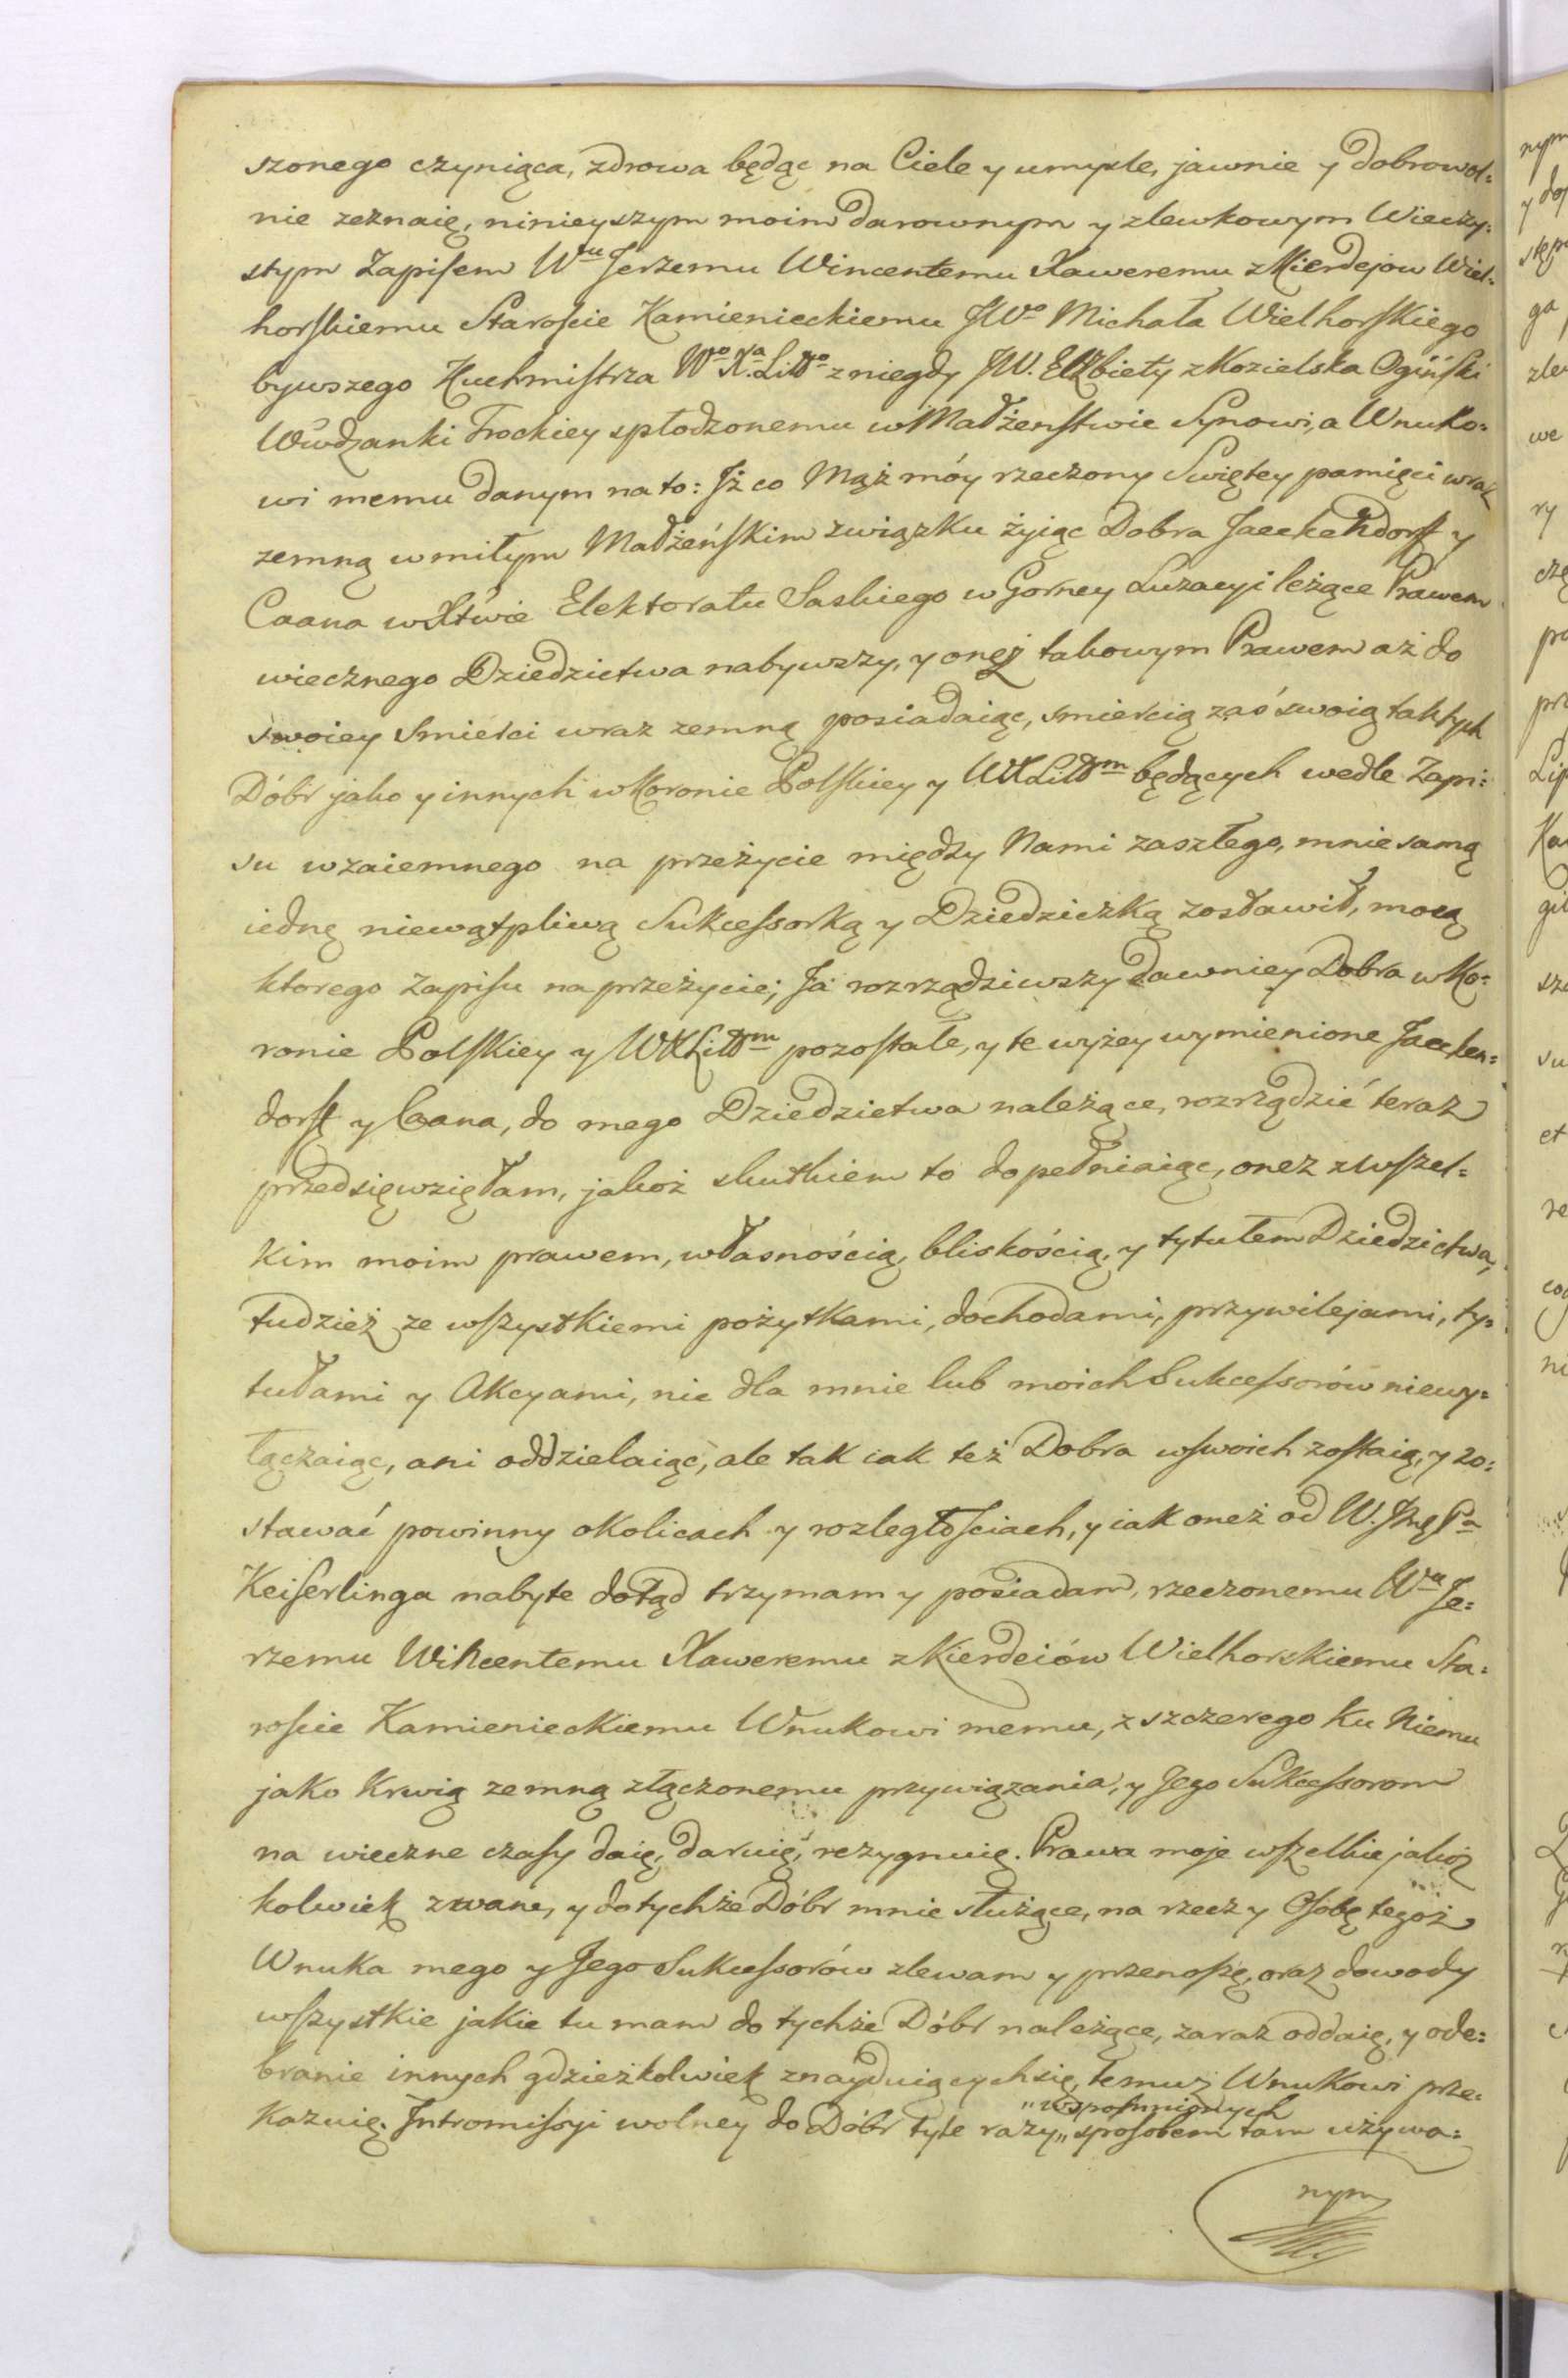 szonego czyniąca, zdrowa będąc na Ciele y umyśle, jawnie y dobrowol=
nie zeznaię, ninieyszym moim darownym y zlewkowym Wieczy=
stym Zapisem Wmu Jerzemu Wincentemu Xaweremu z Kierdejow Wiel=
horskiemu Staroscie Kamienieckiemu JWo Michała Wielhorskiego
bywszego Kuchmistrza Wo Xa Litto z niegdy JW. Elżbiety z Kozielska Ogiński
Wwdzanki Trockiey spłodzonemu w Małżenstwie Synowi, a Wnuko=
wi memu danym na to: Iż co Mąż móy rzeczony Swiętey pamięci wraz
zemną w miłym Małżeńskim związku żyiąc Dobra Jaeckendorff y
Caana w Xtwie Elektoratu Saskiego w Gorney Luzacyi leżące Prawem
wiecznego Dziedzictwa nabywszy, y oneż takowym Prawem aż do
swoiey Smierci wraz zemną posiadaiąc, smiercią zaś swoią tak tych
Dóbr jako y innych w Koronie Polskiey y WXLittm będących wedle Zapi=
su wzaiemnego na przeżycie między Nami zaszłego, mnie samą
iedną niewątpliwą Sukcessorką y Dziedziczką zostawił, mocą
ktorego Zapisu na przeżycie; Ja rozrządziwszy dawniey Dobra w Ko=
ronie Polskiey y WXLittm pozostałe, y te wyżey wymienione Jaecken=
dorff y Caana, do mego Dziedzictwa należące, rozrządzić teraz
przedsięwzięłam, jakoż skutkiem to dopełniaiąc, onez z wszel=
kim moim prawem, własnością, bliskością, y tytułem Dziedzictwa,
tudzież ze wszystkiemi pożytkami, dochodami, przywilejami, ty=
tułami y Akcyami, nic dla mnie lub moich Sukcessorów niewy=
łączaiąc, ani oddzielaiąc, ale tak iak też Dobra w swoich zostaią, y zo=
stawać powinny okolicach y rozległościach, y iak oneż od W. Jmę Pa
Keiserlinga nabyte dotąd trzymam y posiadam, rzeczonemu Wu Je=
rzemu Wincentemu Xaweremu z Kierdeiów Wielhorskiemu Sta=
roscie Kamienieckiemu Wnukowi memu, z szczerego ku Niemu
jako Krwią zemną złączonemu przywiązania, y Jego Sukcessorom
na wieczne czasy daię, daruię, rezygnuię. Prawa moje wszelkie jakoż
kolwiek zwane, y do tychże Dóbr mnie służące, na rzecz y Osobę tegoż
Wnuka mego y Jego Sukcessorów zlewam y przenoszę, oraz dowody
wszystkie jakie tu mam do tychże Dóbr należące, zaraz oddaię, y ode=
branie innych gdzieżkolwiek znayduiących się, temuż Wnukowi prze=
kazuię. Intromissyi wolney do Dóbr tyle razy „wspomnionych„ sposobem tam używa=
nym